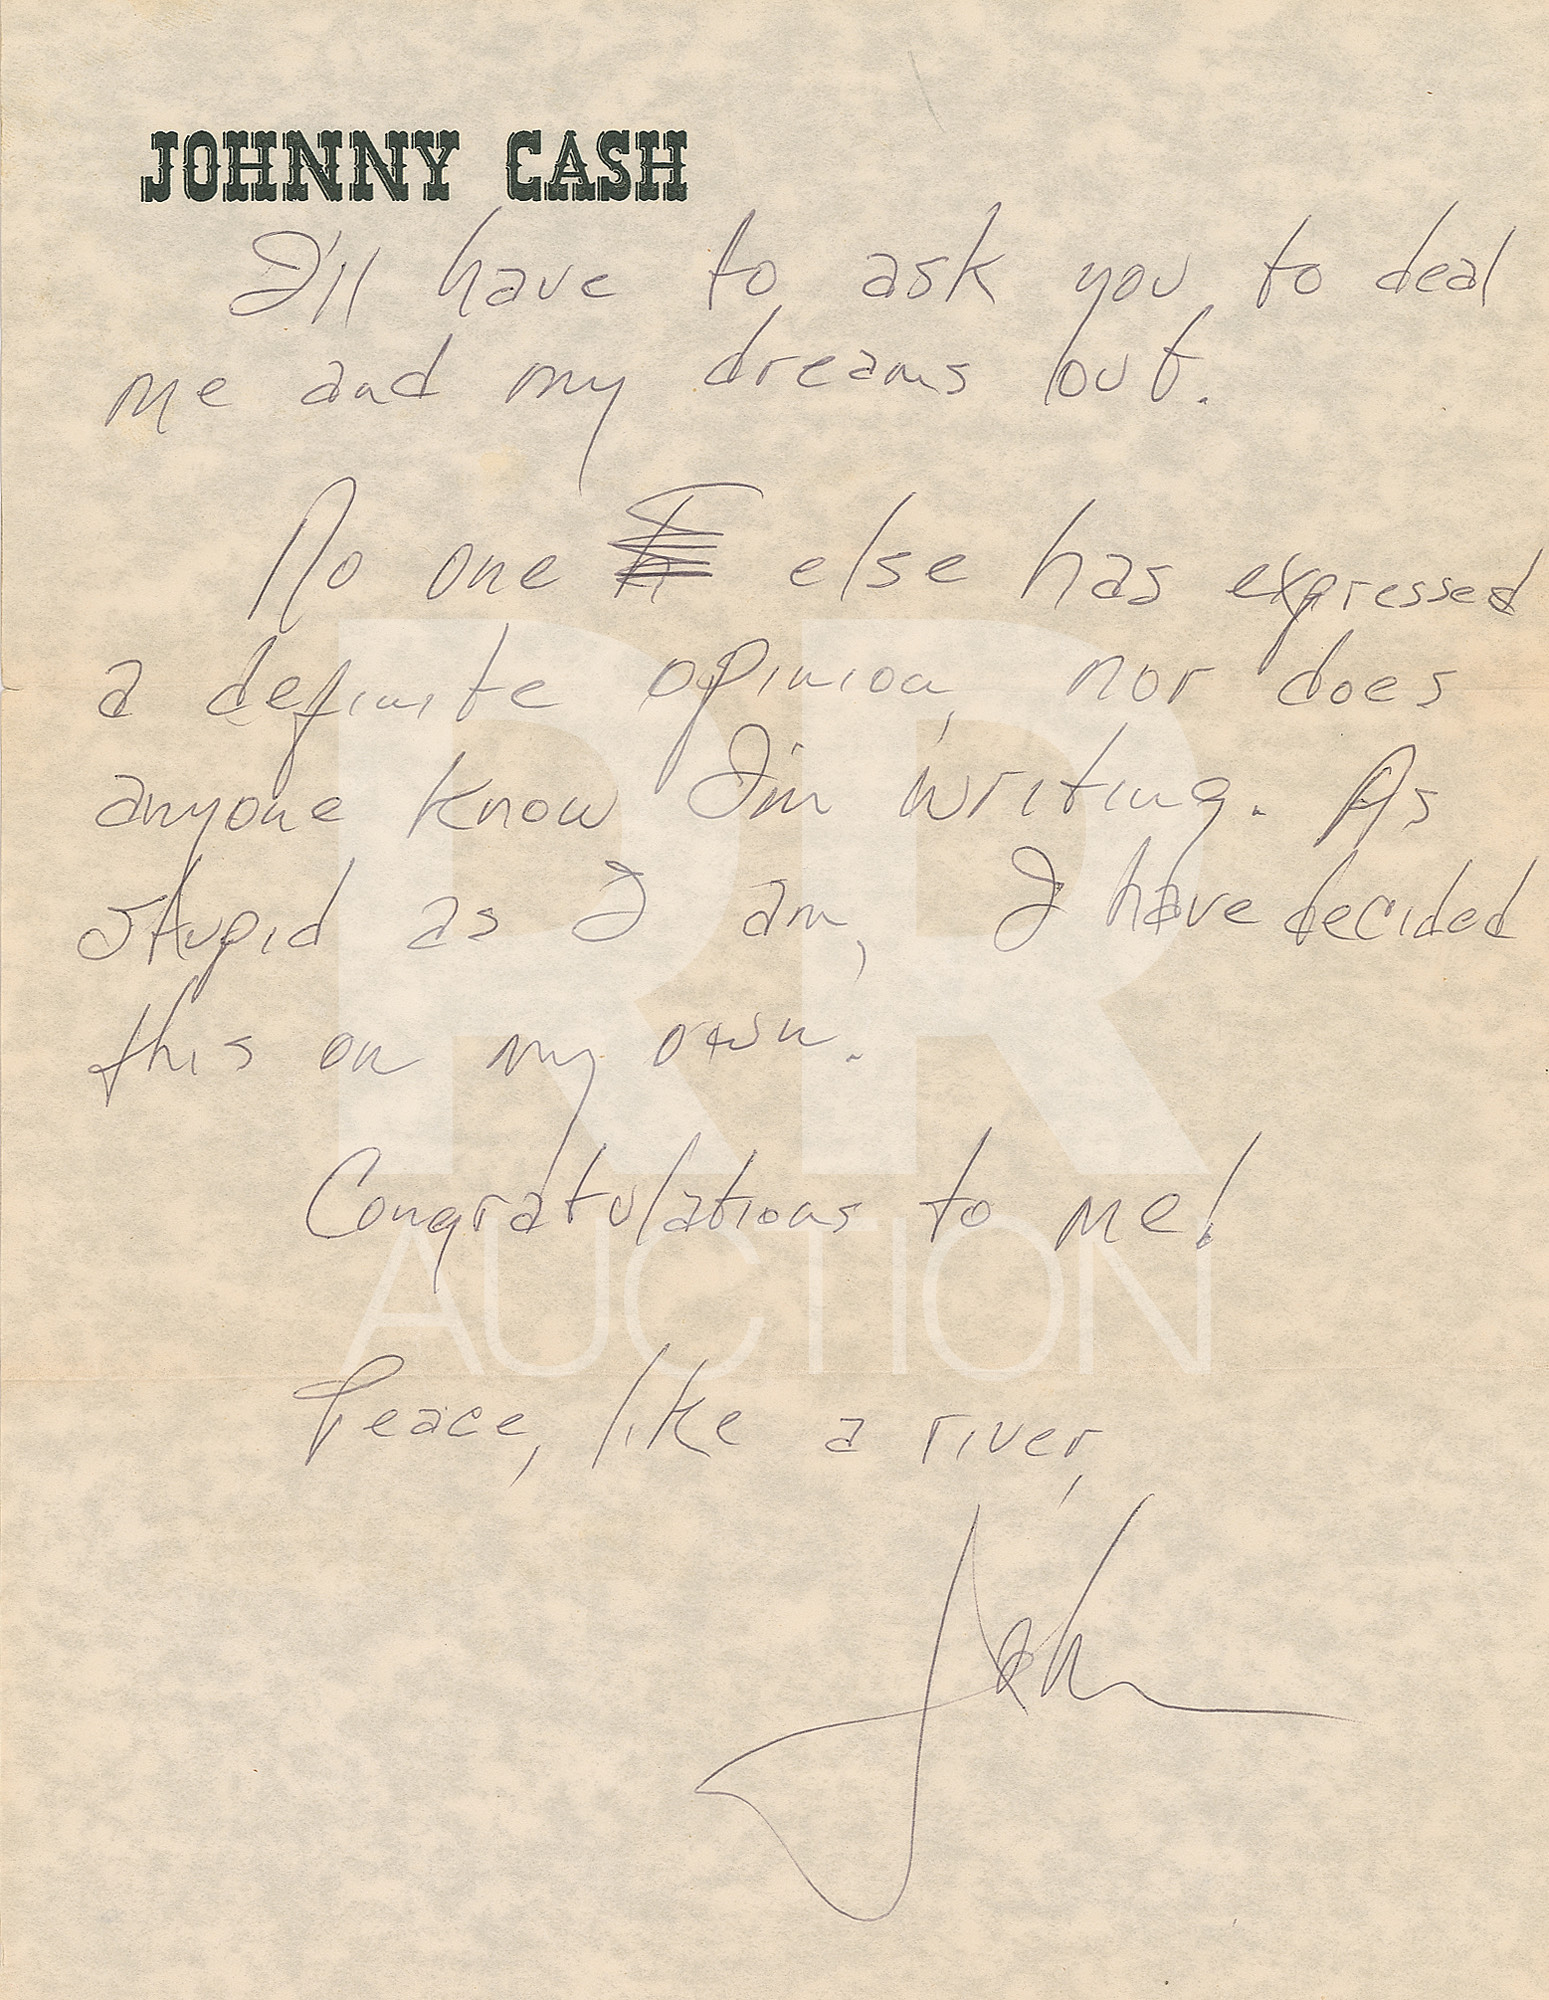 JOHNNY CASH
I'll have to ask you to deal
me and my dreams out.
No one else has expressed
a definite opinion, nor does
anyone know I'm writing. As
stupid as I am, I have decided
this on my own.
Congratulations to me!
Peace, like a river,
John
RR
AUCTION